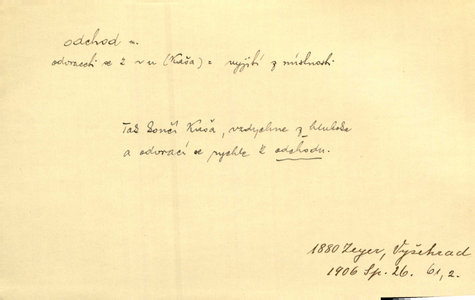 odchod m.
odvraceti se k v u (Kaša) = vyjíti z místnosti
Tak končí Kaša, vzdychne z hluboka
a odvrací se rychle k odchodu.
1880 Zeyer, Vyšehrad
1906 Sp. 26. 61, 2.